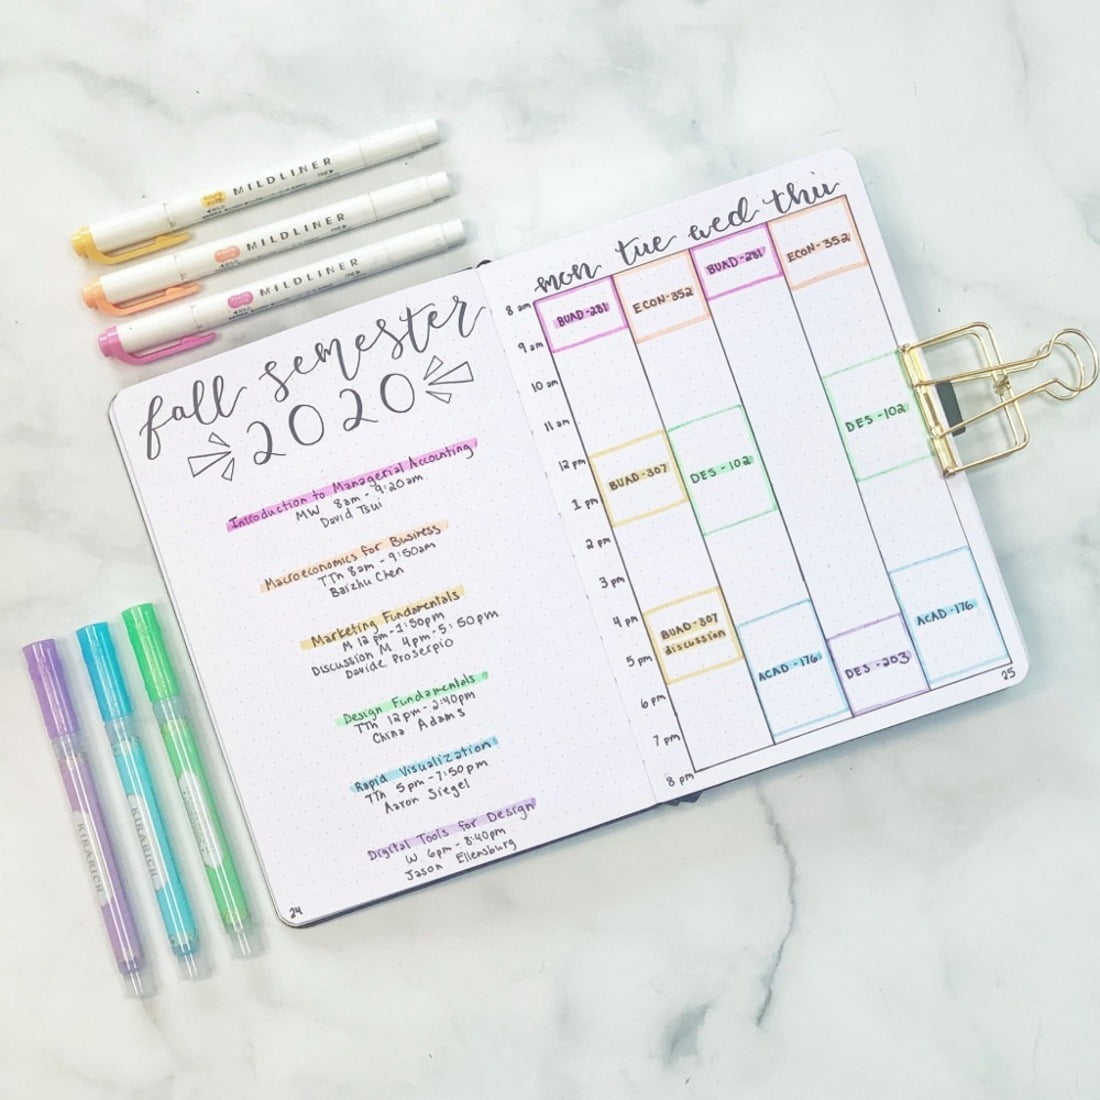 MILDLINER
MILDLINER
MILDLINER
fall semester
2020
Introduction to Managerial Accounting
MW 8am - 9:20am
David Tsui
Macroeconomics for Business
TTh 8am - 9:50am
Baizhu Chen
Marketing Fundamentals
M 12pm-1:50pm
Discussion M 4pm-5:50pm
Davide Proserpio
Design Fundamentals
TTh 12pm-2:40pm
China Adams
Rapid Visualization
TTh 5pm-7:50pm
Aaron Siegel
Digital Tools for Design
W 6pm-8:40pm
Jason Ellenburg
24
mon tue wed thu
8am
9am
10am
11am
12pm
1pm
2pm
3pm
4pm
5pm
6pm
7pm
8pm
BUAD-281
BUAD-307
BUAD-307
discussion
ECON-352
DES-102
ACAD-176
BUAD-281
DES-203
ECON-352
DES-102
ACAD-176
25
KIRARICH
KIRARICH